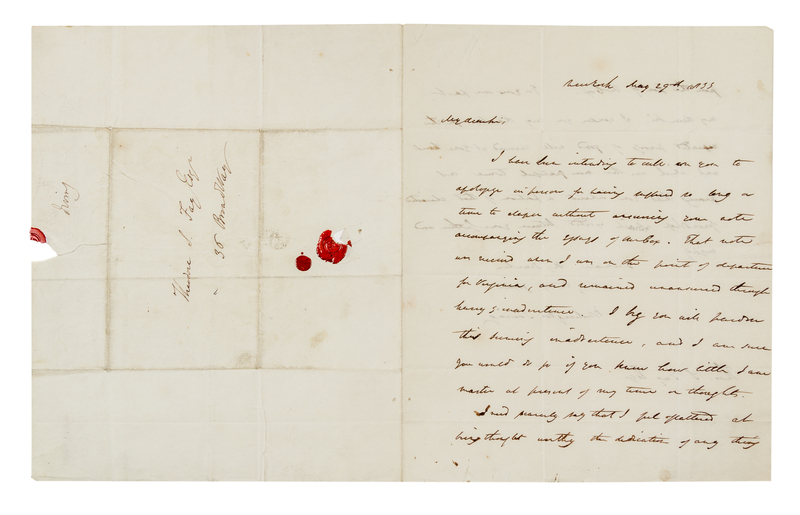 Irving
Theodore S. Fay Esqr
38 Broadway
New York May 29th 1833
My dear Sir,
I have been intending to call on you to
apologize in person for having suffered so long a
time to elapse without answering your note
accompanying the of . That note
was received when I was on the point of departure
for Virginia, and remained unanswered through
hurry & inadvertence. I beg you will pardon
this seeming inadvertence, and I am sure
you would do so if you knew how little I am
master at present of my time or thoughts.
I need scarcely say that I feel flattered at
being thought worthy the dedication of any thing